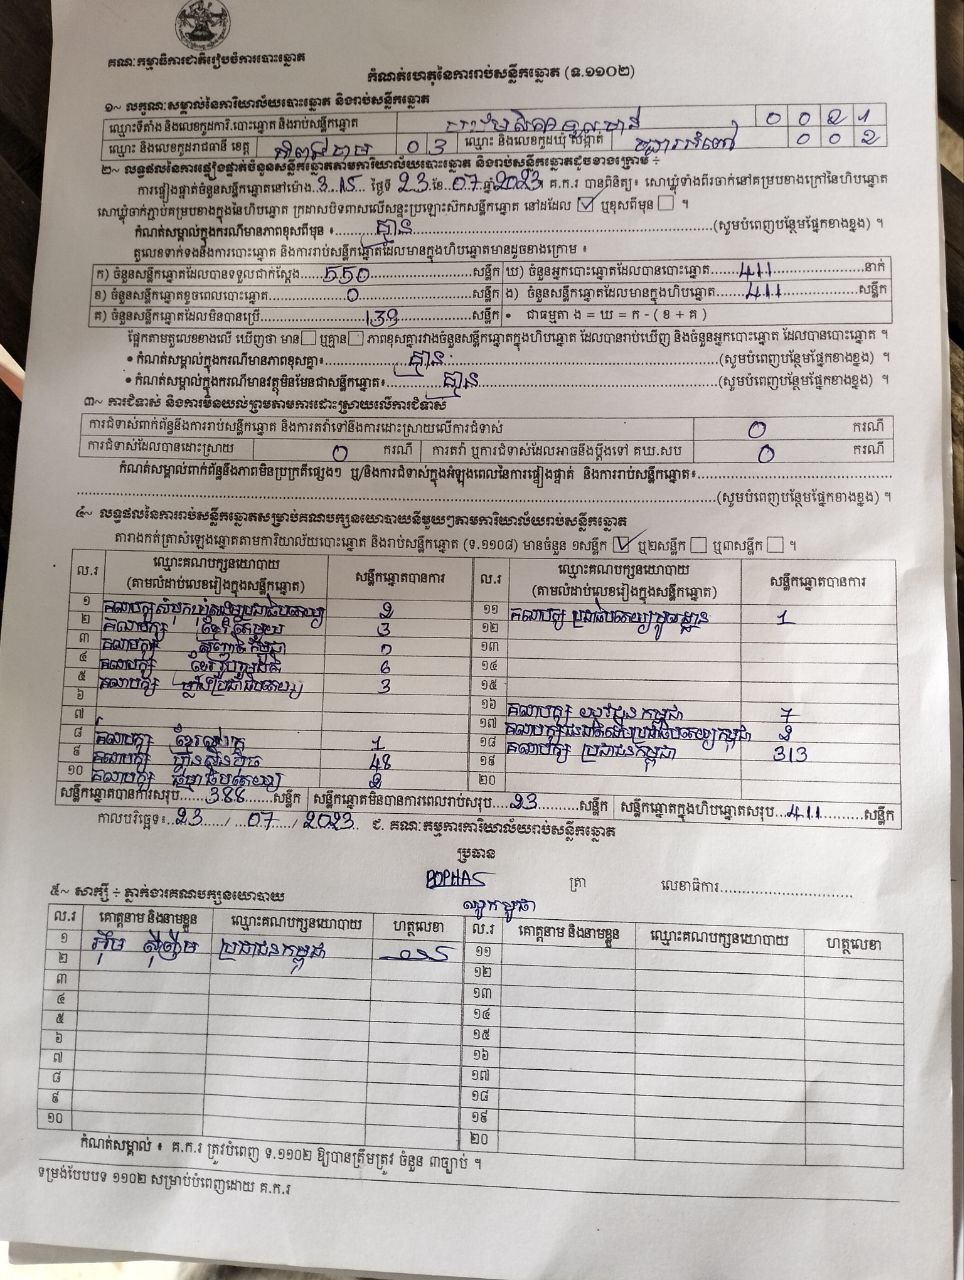 គណៈកម្មាធិការជាតិរៀបចំការបោះឆ្នោត
កំណត់ហេតុនៃការរាប់សន្លឹកឆ្នោត (ទ.១១០២)
១~ លក្ខណៈសម្គាល់នៃការិយាល័យបោះឆ្នោត និងរាប់សន្លឹកឆ្នោត
ឈ្មោះទីតាំង និងលេខកូដការិ.បោះឆ្នោត និងរាប់សន្លឹកឆ្នោត 0 0 2 1
ឈ្មោះ និងលេខកូដរាជធានី ខេត្ត កំពង់ចាម 0 3 ឈ្មោះ និងលេខកូដឃុំ សង្កាត់ 0 0 2
២~ លទ្ធផលនៃការផ្ទៀងផ្ទាត់ចំនួនសន្លឹកឆ្នោតតាមការិយាល័យបោះឆ្នោត និងរាប់សន្លឹកឆ្នោតដូចខាងក្រោម ÷
ការផ្ទៀងផ្ទាត់ចំនួនសន្លឹកឆ្នោតនៅម៉ោង 3:15 ថ្ងៃទី 23 ខែ 07 ឆ្នាំ 2023 គ.ក.រ បានពិនិត្យ៖ សោឃ្មុំទាំងពីរចាក់នៅគម្របខាងក្រៅនៃហិបឆ្នោត
សោឃ្មុំចាក់ភ្ជាប់គម្របខាងក្នុងនៃហិបឆ្នោត ក្រដាសបិទពាសលើសន្ទះប្រឡោះស៊កសន្លឹកឆ្នោត នៅដដែល ☑ ឬខុសពីមុន ☐ ។
កំណត់សម្គាល់ក្នុងករណីមានភាពខុសពីមុន ៖ គ្មាន (សូមបំពេញបន្ថែមផ្នែកខាងខ្នង) ។
តួលេខទាក់ទងនឹងការបោះឆ្នោត និងការរាប់សន្លឹកឆ្នោតដែលមានក្នុងហិបឆ្នោតមានដូចខាងក្រោម ៖
ក) ចំនួនសន្លឹកឆ្នោតដែលបានទទួលជាក់ស្ដែង 550 សន្លឹក ឃ) ចំនួនអ្នកបោះឆ្នោតដែលបានបោះឆ្នោត 411 នាក់
ខ) ចំនួនសន្លឹកឆ្នោតខូចពេលបោះឆ្នោត 0 សន្លឹក ង) ចំនួនសន្លឹកឆ្នោតដែលមានក្នុងហិបឆ្នោត 411 សន្លឹក
គ) ចំនួនសន្លឹកឆ្នោតដែលមិនបានប្រើ 139 សន្លឹក • ជាធម្មតា ង = ឃ = ក - ( ខ + គ )
ផ្អែកតាមតួលេខខាងលើ ឃើញថា មាន ☐ ឬគ្មាន ☐ ភាពខុសគ្នារវាងចំនួនសន្លឹកឆ្នោតក្នុងហិបឆ្នោត ដែលបានរាប់ឃើញ និងចំនួនអ្នកបោះឆ្នោត ដែលបានបោះឆ្នោត ។
• កំណត់សម្គាល់ក្នុងករណីមានភាពខុសគ្នា៖ គ្មាន (សូមបំពេញបន្ថែមផ្នែកខាងខ្នង) ។
• កំណត់សម្គាល់ក្នុងករណីមានវត្ថុមិនមែនជាសន្លឹកឆ្នោត៖ គ្មាន (សូមបំពេញបន្ថែមផ្នែកខាងខ្នង) ។
៣~ ការជំទាស់ និងការមិនយល់ព្រមតាមការដោះស្រាយលើការជំទាស់
ការជំទាស់ពាក់ព័ន្ធនឹងការរាប់សន្លឹកឆ្នោត និងការតវ៉ាទៅនឹងការដោះស្រាយលើការជំទាស់ 0 ករណី
ការជំទាស់ដែលបានដោះស្រាយ 0 ករណី ការតវ៉ា ឬការជំទាស់ដែលអាចនឹងប្ដឹងទៅ គឃ.សប 0 ករណី
កំណត់សម្គាល់ពាក់ព័ន្ធនឹងភាពមិនប្រក្រតីផ្សេងៗ ឬ/និងការជំទាស់ក្នុងអំឡុងពេលនៃការផ្ទៀងផ្ទាត់ និងការរាប់សន្លឹកឆ្នោត៖
(សូមបំពេញបន្ថែមផ្នែកខាងខ្នង) ។
៤~ លទ្ធផលនៃការរាប់សន្លឹកឆ្នោតសម្រាប់គណបក្សនយោបាយនីមួយៗតាមការិយាល័យរាប់សន្លឹកឆ្នោត
តារាងកត់ត្រាសំឡេងឆ្នោតតាមការិយាល័យបោះឆ្នោត និងរាប់សន្លឹកឆ្នោត (ទ.១១០៨) មានចំនួន ១សន្លឹក ☑ ឬ២សន្លឹក ☐ ឬ៣សន្លឹក ☐ ។
ល.រ ឈ្មោះគណបក្សនយោបាយ (តាមលំដាប់លេខរៀងក្នុងសន្លឹកឆ្នោត) សន្លឹកឆ្នោតបានការ ល.រ ឈ្មោះគណបក្សនយោបាយ (តាមលំដាប់លេខរៀងក្នុងសន្លឹកឆ្នោត) សន្លឹកឆ្នោតបានការ
១ គណបក្សសំបុកឃ្មុំសង្គមប្រជាធិបតេយ្យ 2 ១១ គណបក្ស ប្រជាធិបតេយ្យមូលដ្ឋាន 1
២ គណបក្ស ខ្មែរតែមួយ 3 ១២
៣ គណបក្ស កម្ពុជា ១៣
៤ គណបក្ស ខ្មែររួបរួមជាតិ 6 ១៤
៥ គណបក្ស ប្រជាធិបតេយ្យ 3 ១៥
៦ ១៦ គណបក្ស យុវជនកម្ពុជា 7
៧ ១៧ គណបក្សជនជាតិដើមប្រជាធិបតេយ្យកម្ពុជា 2
៨ គណបក្ស ខ្មែរ 1 ១៨ គណបក្ស ប្រជាជនកម្ពុជា 313
៩ គណបក្ស ហ្វ៊ុនស៊ិនប៉ិច 48 ១៩
១០ គណបក្ស ធម្មាធិបតេយ្យ 2 ២០
សន្លឹកឆ្នោតបានការសរុប 388 សន្លឹក សន្លឹកឆ្នោតមិនបានការពេលរាប់សរុប 23 សន្លឹក សន្លឹកឆ្នោតក្នុងហិបឆ្នោតសរុប 411 សន្លឹក
កាលបរិច្ឆេទ៖ 23 / 07 / 2023 ជ. គណៈកម្មការការិយាល័យរាប់សន្លឹកឆ្នោត
ប្រធាន
POPHAS ត្រា លេខាធិការ
៥~ សាក្សី ÷ ភ្នាក់ងារគណបក្សនយោបាយ
ល.រ គោត្តនាម និងនាមខ្លួន ឈ្មោះគណបក្សនយោបាយ ហត្ថលេខា ល.រ គោត្តនាម និងនាមខ្លួន ឈ្មោះគណបក្សនយោបាយ ហត្ថលេខា
១ ប្រជាជនកម្ពុជា ១១
២ ១២
៣ ១៣
៤ ១៤
៥ ១៥
៦ ១៦
៧ ១៧
៨ ១៨
៩ ១៩
១០ ២០
កំណត់សម្គាល់ ៖ គ.ក.រ ត្រូវបំពេញ ទ.១១០២ ឱ្យបានត្រឹមត្រូវ ចំនួន ៣ច្បាប់ ។
ទម្រង់បែបបទ ១១០២ សម្រាប់បំពេញដោយ គ.ក.រ